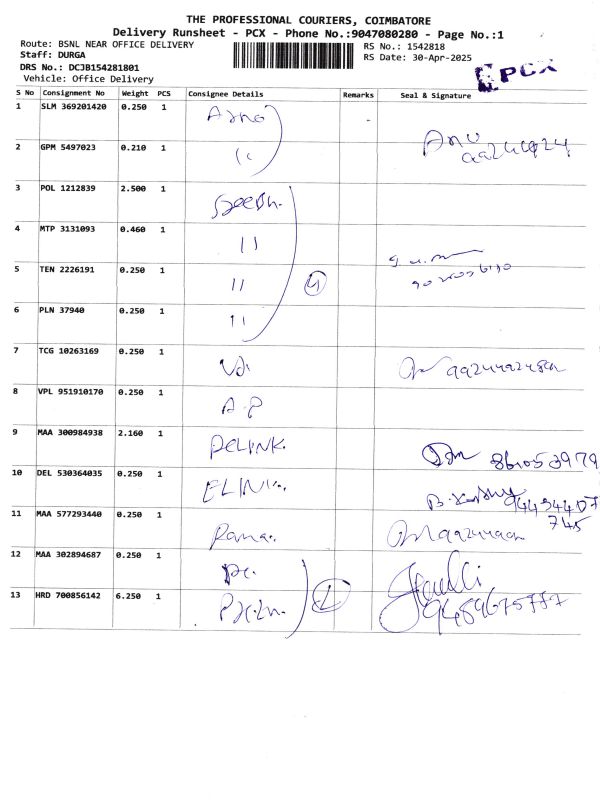 THE PROFESSIONAL COURIERS, COIMBATORE
Delivery Runsheet - PCX - Phone No.:9047080280 - Page No.:1
Route: BSNL NEAR OFFICE DELIVERY
RS No.: 1542818
Staff: DURGA
RS Date: 30-Apr-2025
DRS No.: DCJB154281801
Vehicle: Office Delivery
PCX
S No Consignment No Weight PCS Consignee Details Remarks Seal & Signature
1 SLM 369201420 0.250 1
2 GPM 5497023 0.210 1 11
3 POL 1212839 2.500 1
4 MTP 3131093 0.460 1 11
5 TEN 2226191 0.250 1 11 4
6 PLN 37940 0.250 1 11
7 TCG 10263169 0.250 1
8 VPL 951910170 0.250 1 A-P
9 MAA 300984938 2.160 1 DELINK. 8610553979
10 DEL 530364035 0.250 1 ELINK. 9434407
745
11 MAA 577293440 0.250 1 Rama.
12 MAA 302894687 0.250 1 pc.
13 HRD 700856142 6.250 1 2 9489675777